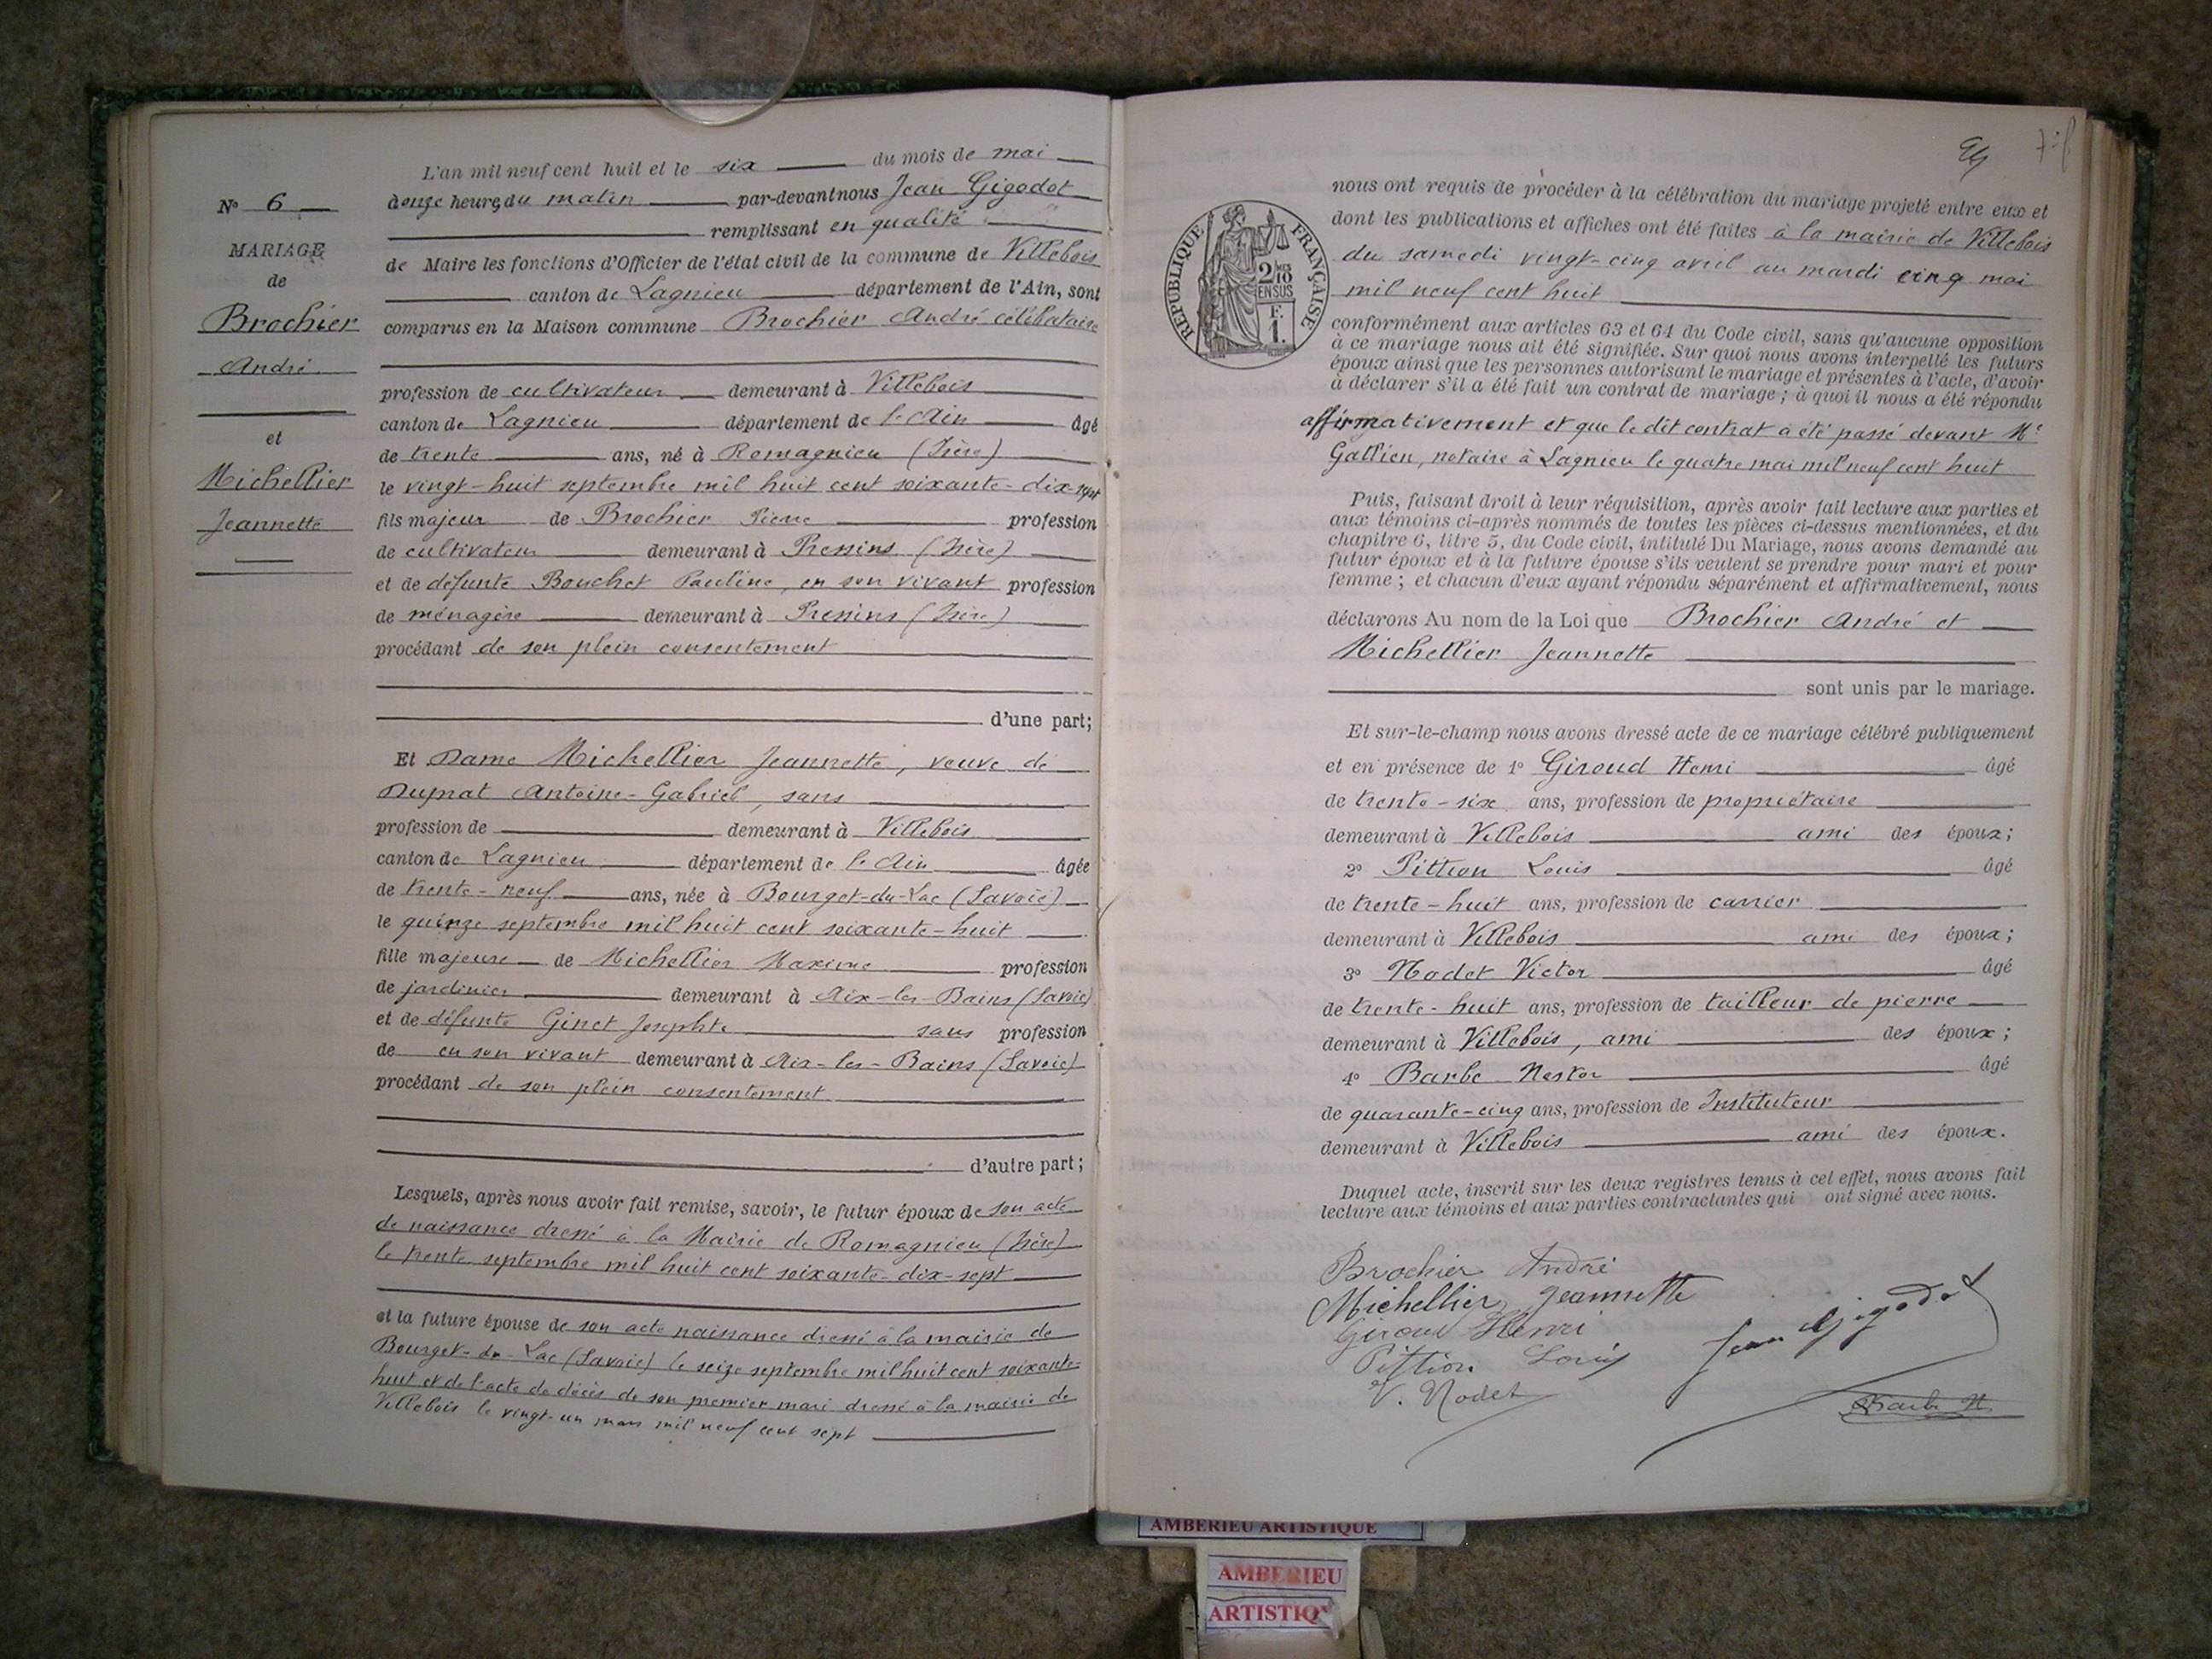 N° 6
MARIAGE
de
Brochier
André
et
Michellier
Jeannette
L'an mil neuf cent huit et le six du mois de mai
à onze heures du matin par-devant nous Jean Gigodot
remplissant en qualité
de Maire les fonctions d'Officier de l'état civil de la commune de Villebois
canton de Lagnieu département de l'Ain, sont
comparus en la Maison commune Brochier André célibataire
profession de cultivateur demeurant à Villebois
canton de Lagnieu département de l'Ain âgé
de trente ans, né à Romagnieu (Isère)
le vingt-huit septembre mil huit cent soixante-dix-sept
fils majeur de Brochier Pierre profession
de cultivateur demeurant à Pressins (Isère)
et de défunte Bouchet Pauline, en son vivant profession
de ménagère demeurant à Pressins (Isère)
procédant de son plein consentement
d'une part;
Et Dame Michellier Jeannette, veuve de
Duprat Antoine-Gabriel, sans
profession de demeurant à Villebois
canton de Lagnieu département de l'Ain âgée
de trente-neuf ans, née à Bourget-du-Lac (Savoie)
le quinze septembre mil huit cent soixante-huit
fille majeure de Michellier Maxime profession
de jardinier demeurant à Aix-les-Bains (Savoie)
et de défunte Ginet Josephte sans profession
de en son vivant demeurant à Aix-les-Bains (Savoie)
procédant de son plein consentement
d'autre part;
Lesquels, après nous avoir fait remise, savoir, le futur époux de son acte
de naissance dressé à la Mairie de Romagnieu (Isère)
le trente septembre mil huit cent soixante-dix-sept
et la future épouse de son acte naissance dressé à la mairie de
Bourget-du-Lac (Savoie) le seize septembre mil huit cent soixante-
huit et de l'acte de décès de son premier mari dressé à la mairie de
Villebois le vingt-un mars mil neuf cent sept
RÉPUBLIQUE FRANÇAISE
2/10
EN SUS
F.
1.
nous ont requis de procéder à la célébration du mariage projeté entre eux et
dont les publications et affiches ont été faites à la mairie de Villebois
du samedi vingt-cinq avril au mardi cinq mai
mil neuf cent huit
conformément aux articles 63 et 64 du Code civil, sans qu'aucune opposition
à ce mariage nous ait été signifiée. Sur quoi nous avons interpellé les futurs
époux ainsi que les personnes autorisant le mariage et présentes à l'acte, d'avoir
à déclarer s'il a été fait un contrat de mariage; à quoi il nous a été répondu
affirmativement et que le dit contrat a été passé devant Me
Gallien, notaire à Lagnieu le quatre mai mil neuf cent huit
Puis, faisant droit à leur réquisition, après avoir fait lecture aux parties et
aux témoins ci-après nommés de toutes les pièces ci-dessus mentionnées, et du
chapitre 6, titre 5, du Code civil, intitulé Du Mariage, nous avons demandé au
futur époux et à la future épouse s'ils veulent se prendre pour mari et pour
femme; et chacun d'eux ayant répondu séparément et affirmativement, nous
déclarons Au nom de la Loi que Brochier André et
Michellier Jeannette
sont unis par le mariage.
Et sur-le-champ nous avons dressé acte de ce mariage célébré publiquement
et en présence de 1° Giroud Henri âgé
de trente-six ans, profession de propriétaire
demeurant à Villebois ami des époux;
2° Pittion Louis âgé
de trente-huit ans, profession de carrier
demeurant à Villebois ami des époux;
3° Nodet Victor âgé
de trente-huit ans, profession de tailleur de pierre
demeurant à Villebois, ami des époux;
4° Barbe Nestor âgé
de quarante-cinq ans, profession de Instituteur
demeurant à Villebois ami des époux.
Duquel acte, inscrit sur les deux registres tenus à cet effet, nous avons fait
lecture aux témoins et aux parties contractantes qui ont signé avec nous.
Brochier André
Michellier Jeannette
Giroud Henri
Jean Gigodot
Pittion Louis
V. Nodet
Barbe N.
AMBERIEU ARTISTIQUE
AMBERIEU
ARTISTIQ